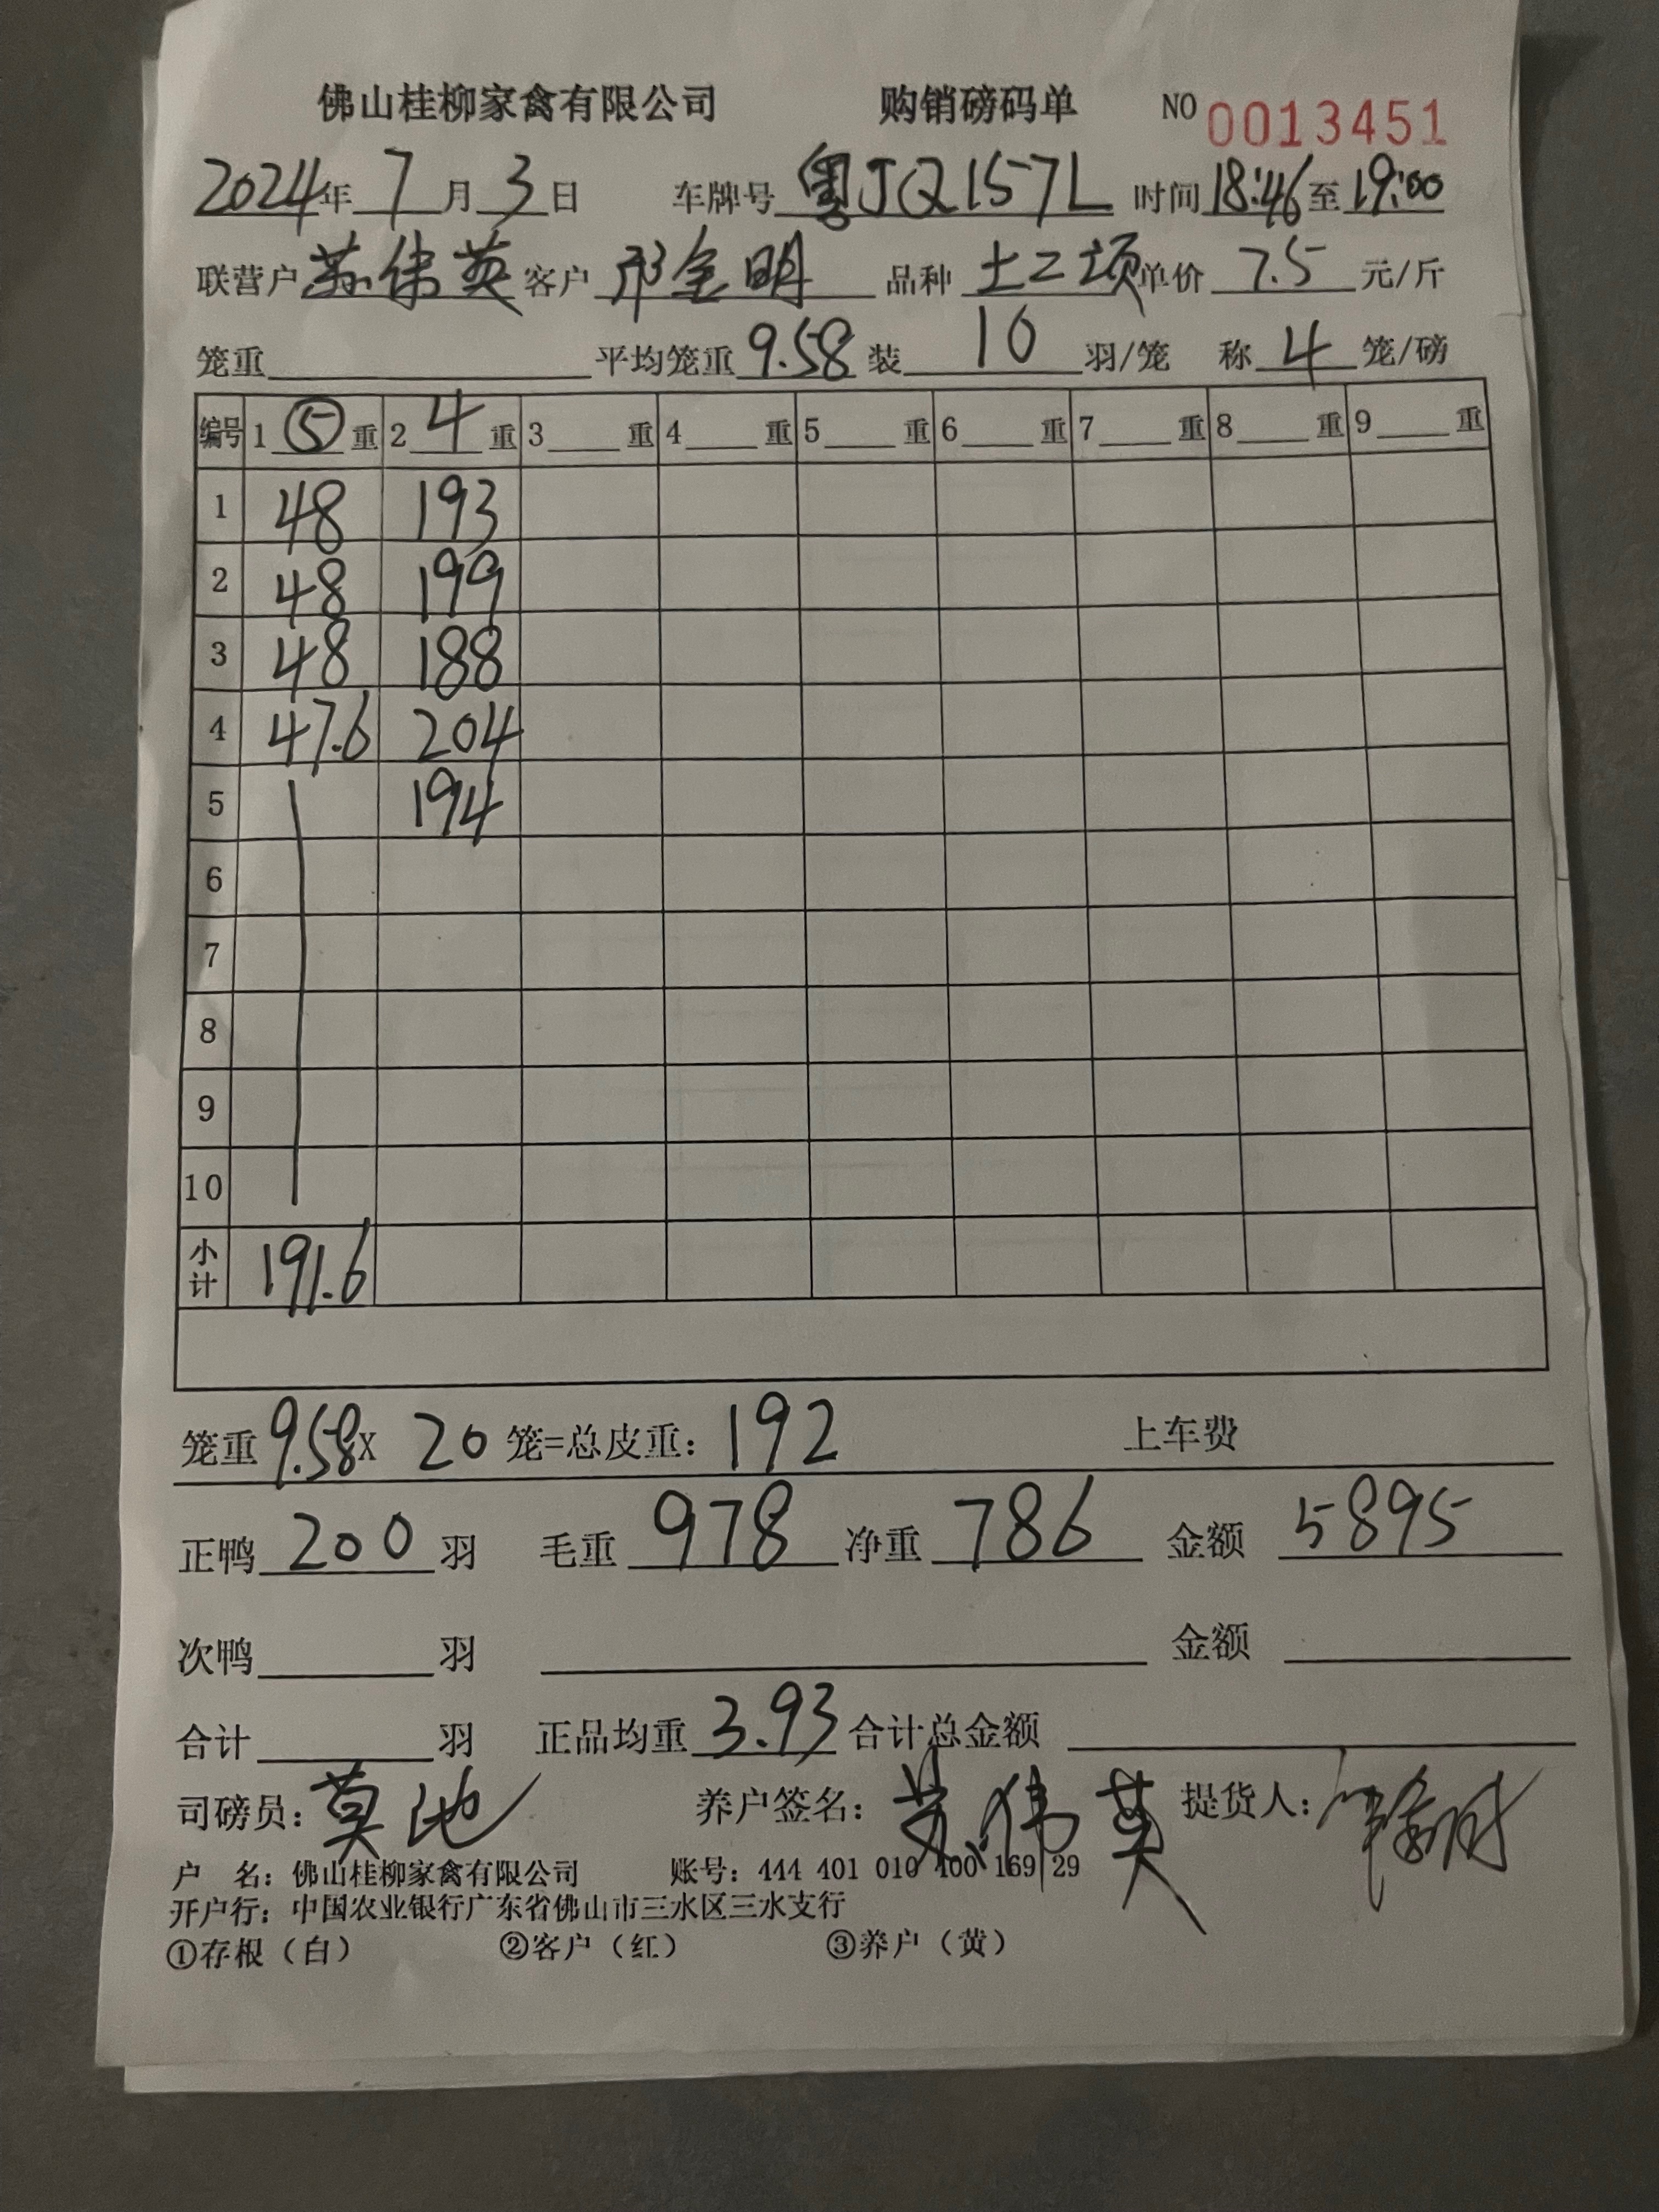 佛山桂柳家禽有限公司 购销磅码单 NO 0013451
2024年 7 月 3 日 车牌号 粤JQ157L 时间 18:46 至 19:00
联营户 苏伟英 客户 邓金明 品种 土二项 单价 7.5 元/斤
笼重 平均笼重 9.58 装 10 羽/笼 称 4 笼/磅
编号 1 ⑤ 重 2 4 重 3 重 4 重 5 重 6 重 7 重 8 重 9 重
1 48 193
2 48 199
3 48 188
4 47.6 204
5 194
6
7
8
9
10
小计 191.6
笼重 9.58 X 20 笼=总皮重: 192 上车费
正鸭 200 羽 毛重 978 净重 786 金额 5895
次鸭 羽 金额
合计 羽 正品均重 3.93 合计总金额
司磅员: 莫池 养户签名: 苏伟英 提货人:
户 名: 佛山桂柳家禽有限公司 账号: 444 401 010 400 169 29
开户行: 中国农业银行广东省佛山市三水区三水支行
①存根（白） ②客户（红） ③养户（黄）